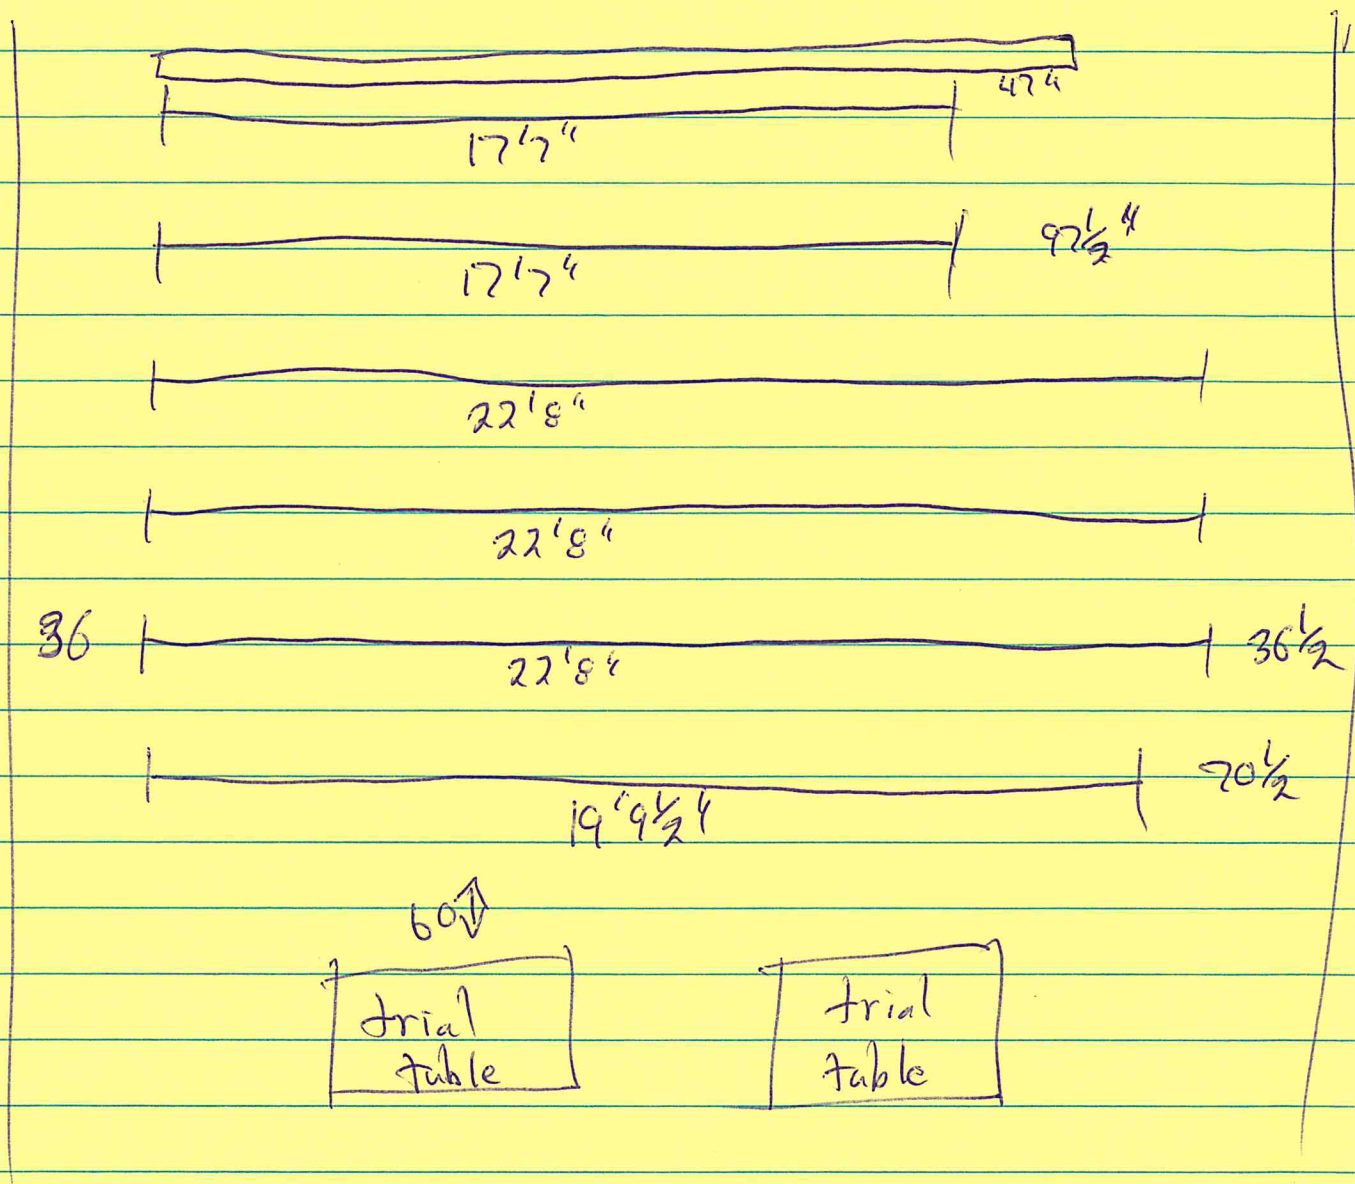 47"
17'7"
17'7" 97½"
22'8"
22'8"
36 22'8" 36½
19'9½" 70½
60
trial
table
trial
table